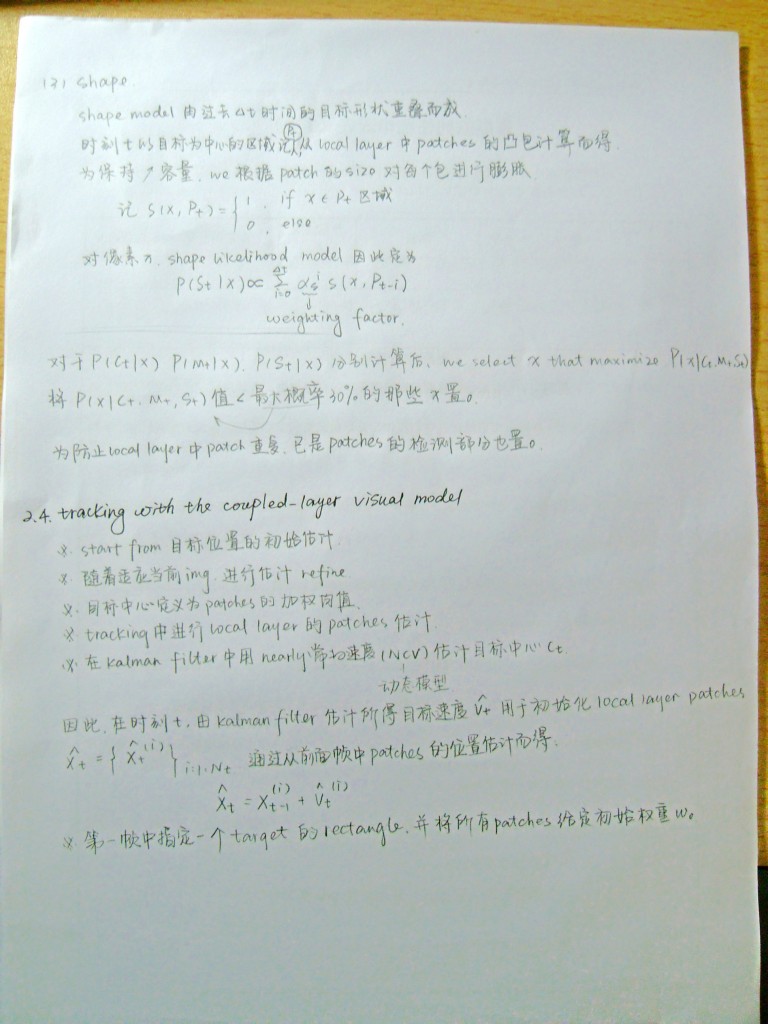 (3) shape.
shape model 由过去 Δt 时间的目标形状重叠而成.
时刻 t 以目标为中心的区域 Pt 从 local layer 中 patches 的凸包计算而得.
为保持 容量, we 根据 patch 的 size 对每个包进行膨胀.
记 s(x, Pt) = { 1 , if x ∈ Pt 区域
0 , else
对像素 x, shape likelihood model 因此定为
P(St|x) ∝ Σ_{i=0}^{Δt} αs^i s(x, Pt-i)
↓
weighting factor.
对于 P(Ct|x) P(Mt|x). P(St|x) 分别计算后, we select x that maximize P(x|Ct.Mt.St)
将 P(x|Ct. Mt, St) 值 < 最大概率 30% 的那些 x 置0
为防止 local layer 中 patch 重复, 已是 patches 的检测部分也置0.
2.4. tracking with the coupled-layer visual model
※. start from 目标位置的初始估计.
※. 随着适应当前 img. 进行估计 refine
※. 目标中心定义为 patches 的加权均值.
※ tracking 中进行 local layer 的 patches 估计.
※. 在 kalman filter 中用 nearly 常速度 (NCV) 估计目标中心 Ct.
动态模型
因此, 在时刻 t. 由 kalman filter 估计所得目标速度 v̂t 用于初始化 local layer patches
X̂t = { x̂t^(i) }i=1:Nt 通过从前面帧中 patches 的位置估计而得:
X̂t = Xt-1^(i) + v̂t^(i)
※ 第一帧中指定一个 target 的 rectangle, 并将所有 patches 给定初始权重 w0